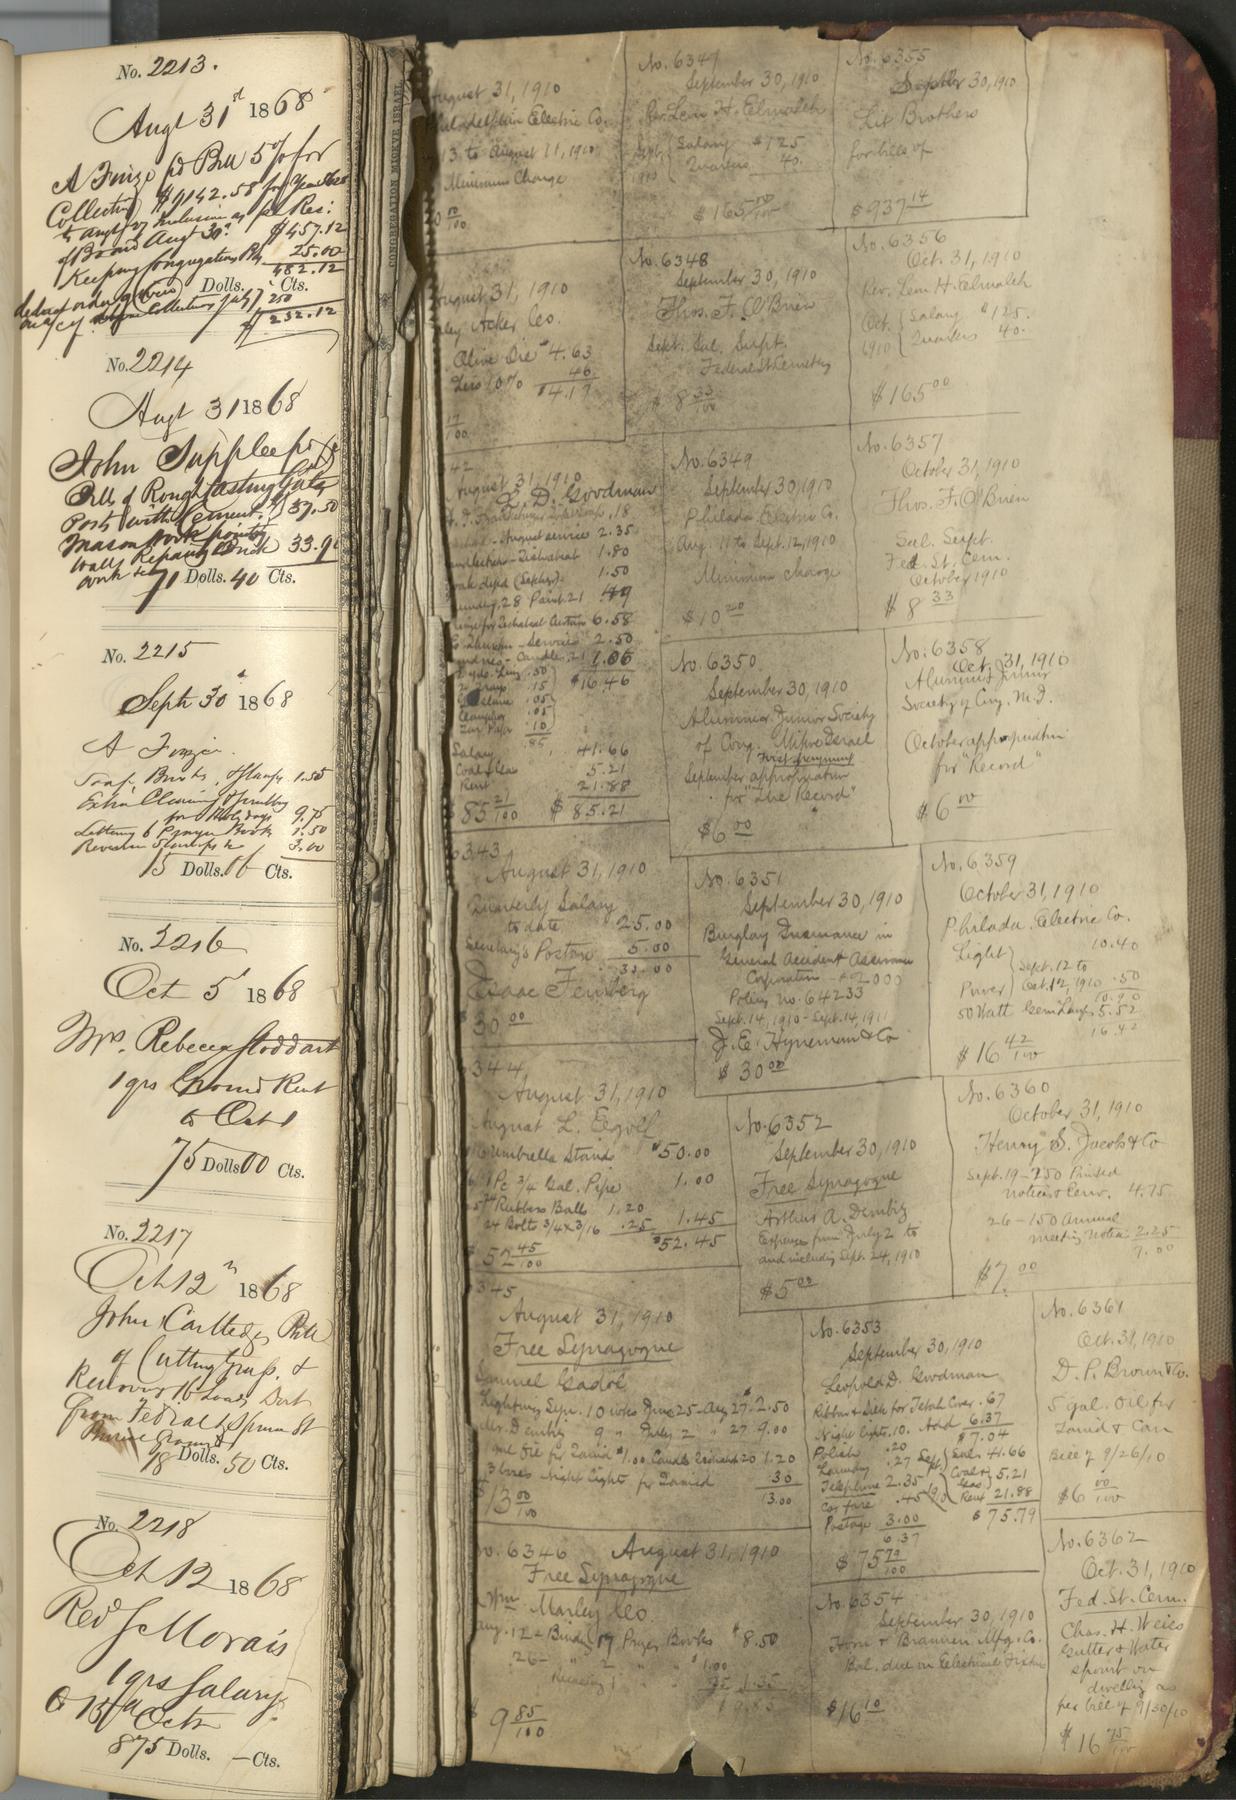 No. 2213.
Augt 31st 1868
A Finzi pd Bill 5% for
Collecting $9142.58 for Year
to Augt 31 Inclusive as pr Res:
of Board Augt 30th $457.12
Keeping Congregation Bks 25.00
482.12
Dolls. Cts.
250
$232.12
No. 2214
Augt 31 1868
John Supplee pd
Bill of Rough Casting Gate
Posts with Cement 37.50
Mason work pointing
Walls Repairing Brick 33.90
work &c
71 Dolls. 40 Cts.
No. 2215
Sept 30th 1868
A Finzi
Soap, Brushes, Stamps 1.50
Extra Cleaning & Scrubbing
for Holydays 9.75
Lettering 6 Prayer Book 1.50
Revenue Stamps &c 3.00
15 Dolls. Cts.
No. 2216
Oct 5th 1868
Mrs. Rebecca Stoddart
1 qrs Ground Rent
to Oct 1
75 Dolls 00 Cts.
No. 2217
Oct 12th 1868
John Cartledge Bill
of Cutting Grass &
Removing 16 Loads Dirt
from Federal & Spruce St
Burial Ground
18 Dolls. 50 Cts.
No. 2218
Oct 12 1868
Revd S Morais
1 qrs Salary
to 13th Octr
875 Dolls. — Cts.
CONGREGATION MIKVE ISRAEL
August 31, 1910
Philadelphia Electric Co.
13 to August 11, 1910
Minimum Charge
August 31, 1910
Acker Co.
Olive Oil $4.63
Less 10% 46
$4.17
17/100
42
August 31, 1910
L. D. Goodman
.18
August services 2.35
1.80
1.50
28 21 49
6.58
Services 2.50
Candles 1.06
.50 $16.46
.15
.05
.05
.10
.85
Salary 41.66
Coal & Gas 5.21
Rent 21.88
$85 21/100 $85.21
6343
August 31, 1910
Quarterly Salary
to date 25.00
Secretary's Postage 5.00
30.00
Isaac Feinberg
$30 00
6344
August 31, 1910
August L.
Umbrella Stand $50.00
1 Pc 3/4 Gal. Pipe 1.00
Rubber Balls 1.20
24 Bolts 3/4 x 3/16 .25 1.45
$52.45
$52 45/100
6345
August 31, 1910
Free Synagogue
Samuel Gadol
Lighting Syn. 10 wks June 25-Aug 27 $2.50
Mr. Dembitz 9 " July 2 " 27 9.00
1 gal Oil for Tamid $1.00 Candles 20 1.20
3 boxes Night Light for Tamid .30
13.00
$13 00/100
No. 6346 August 31, 1910
Free Synagogue
Wm Marley Co.
Aug. 12 - Binding 17 Prayer Books $8.50
26 - " 2 " " $1.00
1.35
$9 85/100
No. 6347
September 30, 1910
Rev. Leon H. Elmaleh
Sept. 1910 { Salary $125
Quarters 40.
$165 00/100
No. 6348
September 30, 1910
Thos. F. O'Brien
Sept. Sal. Supt.
Federal St. Cemetery
$8 33/100
No. 6349
September 30, 1910
Philada Electric Co.
Aug. 11 to Sept. 12, 1910
Minimum charge
$10 20
No. 6350
September 30, 1910
Alumni & Junior Society
of Cong. Mikve Israel
First payment
September appropriation
for "The Record"
$6 00
No. 6351
September 30, 1910
Burglary Insurance in
General Accident Assurance
Corporation $2000
Policy no. 64233
Sept. 14, 1910 - Sept. 14, 1911
J. E. Hyneman & Co
$30 00
No. 6352
September 30, 1910
Free Synagogue
Arthur A. Dembitz
Expenses from July 2 to
and including Sept. 24, 1910
$5 00
No. 6353
September 30, 1910
Leopold D. Goodman
Ribbon & Silk for Tebah Cover .67
Night lights .10. Add 6.37
Polish .20 $7.04
Laundry .27 Sept. Sal. 41.66
Telephone 2.35 Coal & Gas 5.21
Car fare .45 Rent 21.88
Postage 3.00 $75.79
6.37
$75 79/100
No. 6354
September 30, 1910
Horn & Brannen Mfg. Co.
Bal. due on Electrical Fixtures
$16 10
No. 6355
September 30, 1910
Lit Brothers
for bills of
$937 14
No. 6356
Oct. 31, 1910
Rev. Leon H. Elmaleh
Oct. 1910 { Salary $125.
Quarters 40.
$165 00
No. 6357
October 31, 1910
Thos. F. O'Brien
Sal. Supt.
Fed. St. Cem.
October 1910
$8 33
No. 6358
Oct. 31, 1910
Alumni & Junior
Society of Cong. M. I.
October appropriation
for "Record"
$6 00
No. 6359
October 31, 1910
Philada. Electric Co.
Light } 10.40
Sept. 12 to
Power } Oct. 12, 1910 .50
10.90
50 Watt Gem Lamps 5.52
16.42
$16 42/100
No. 6360
October 31, 1910
Henry S. Jacobs & Co
Sept. 19 - 250 Printed
notices & Env. 4.75
26 - 150 Annual
meeting notices 2.25
7.00
$7. 00
No. 6361
Oct. 31, 1910
D. P. Brown & Co.
5 gal. Oil for
Tamid & Can
Bill of 9/26/10
$6 00/100
No. 6362
Oct. 31, 1910
Fed. St. Cem.
Chas. H. Weiss
Gutter & Water
spout on
dwelling as
per bill of 9/30/10
$16 75/100